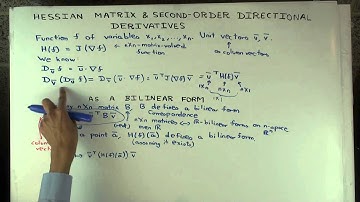 HESSIAN MATRIX & SECOND-ORDER DIRECTIONAL
DERIVATIVES
Function f of variables x₁, x₂, ..., xₙ. Unit vectors u̅, v̅.
H(f) = J(∇f) ← nxn-matrix-valued function
column vectors
We know
D_u̅ f = u̅ · ∇f
D_v̅(D_u̅ f) = D_v̅(u̅ · ∇f) = u̅ᵀ J(∇f) v̅ = u̅ᵀ H(f) v̅
1xn nxn nx1
AS A BILINEAR FORM
nxn matrix B, B defines a bilinear form
u̅ᵀ B v̅ Correspondence
nxn matrices ↔ bilinear forms on n-space
over R
a point a̅, H(f)(a̅) defines a bilinear form
(assuming it exists)
column
vectors
u̅ᵀ (H(f)(a̅)) v̅